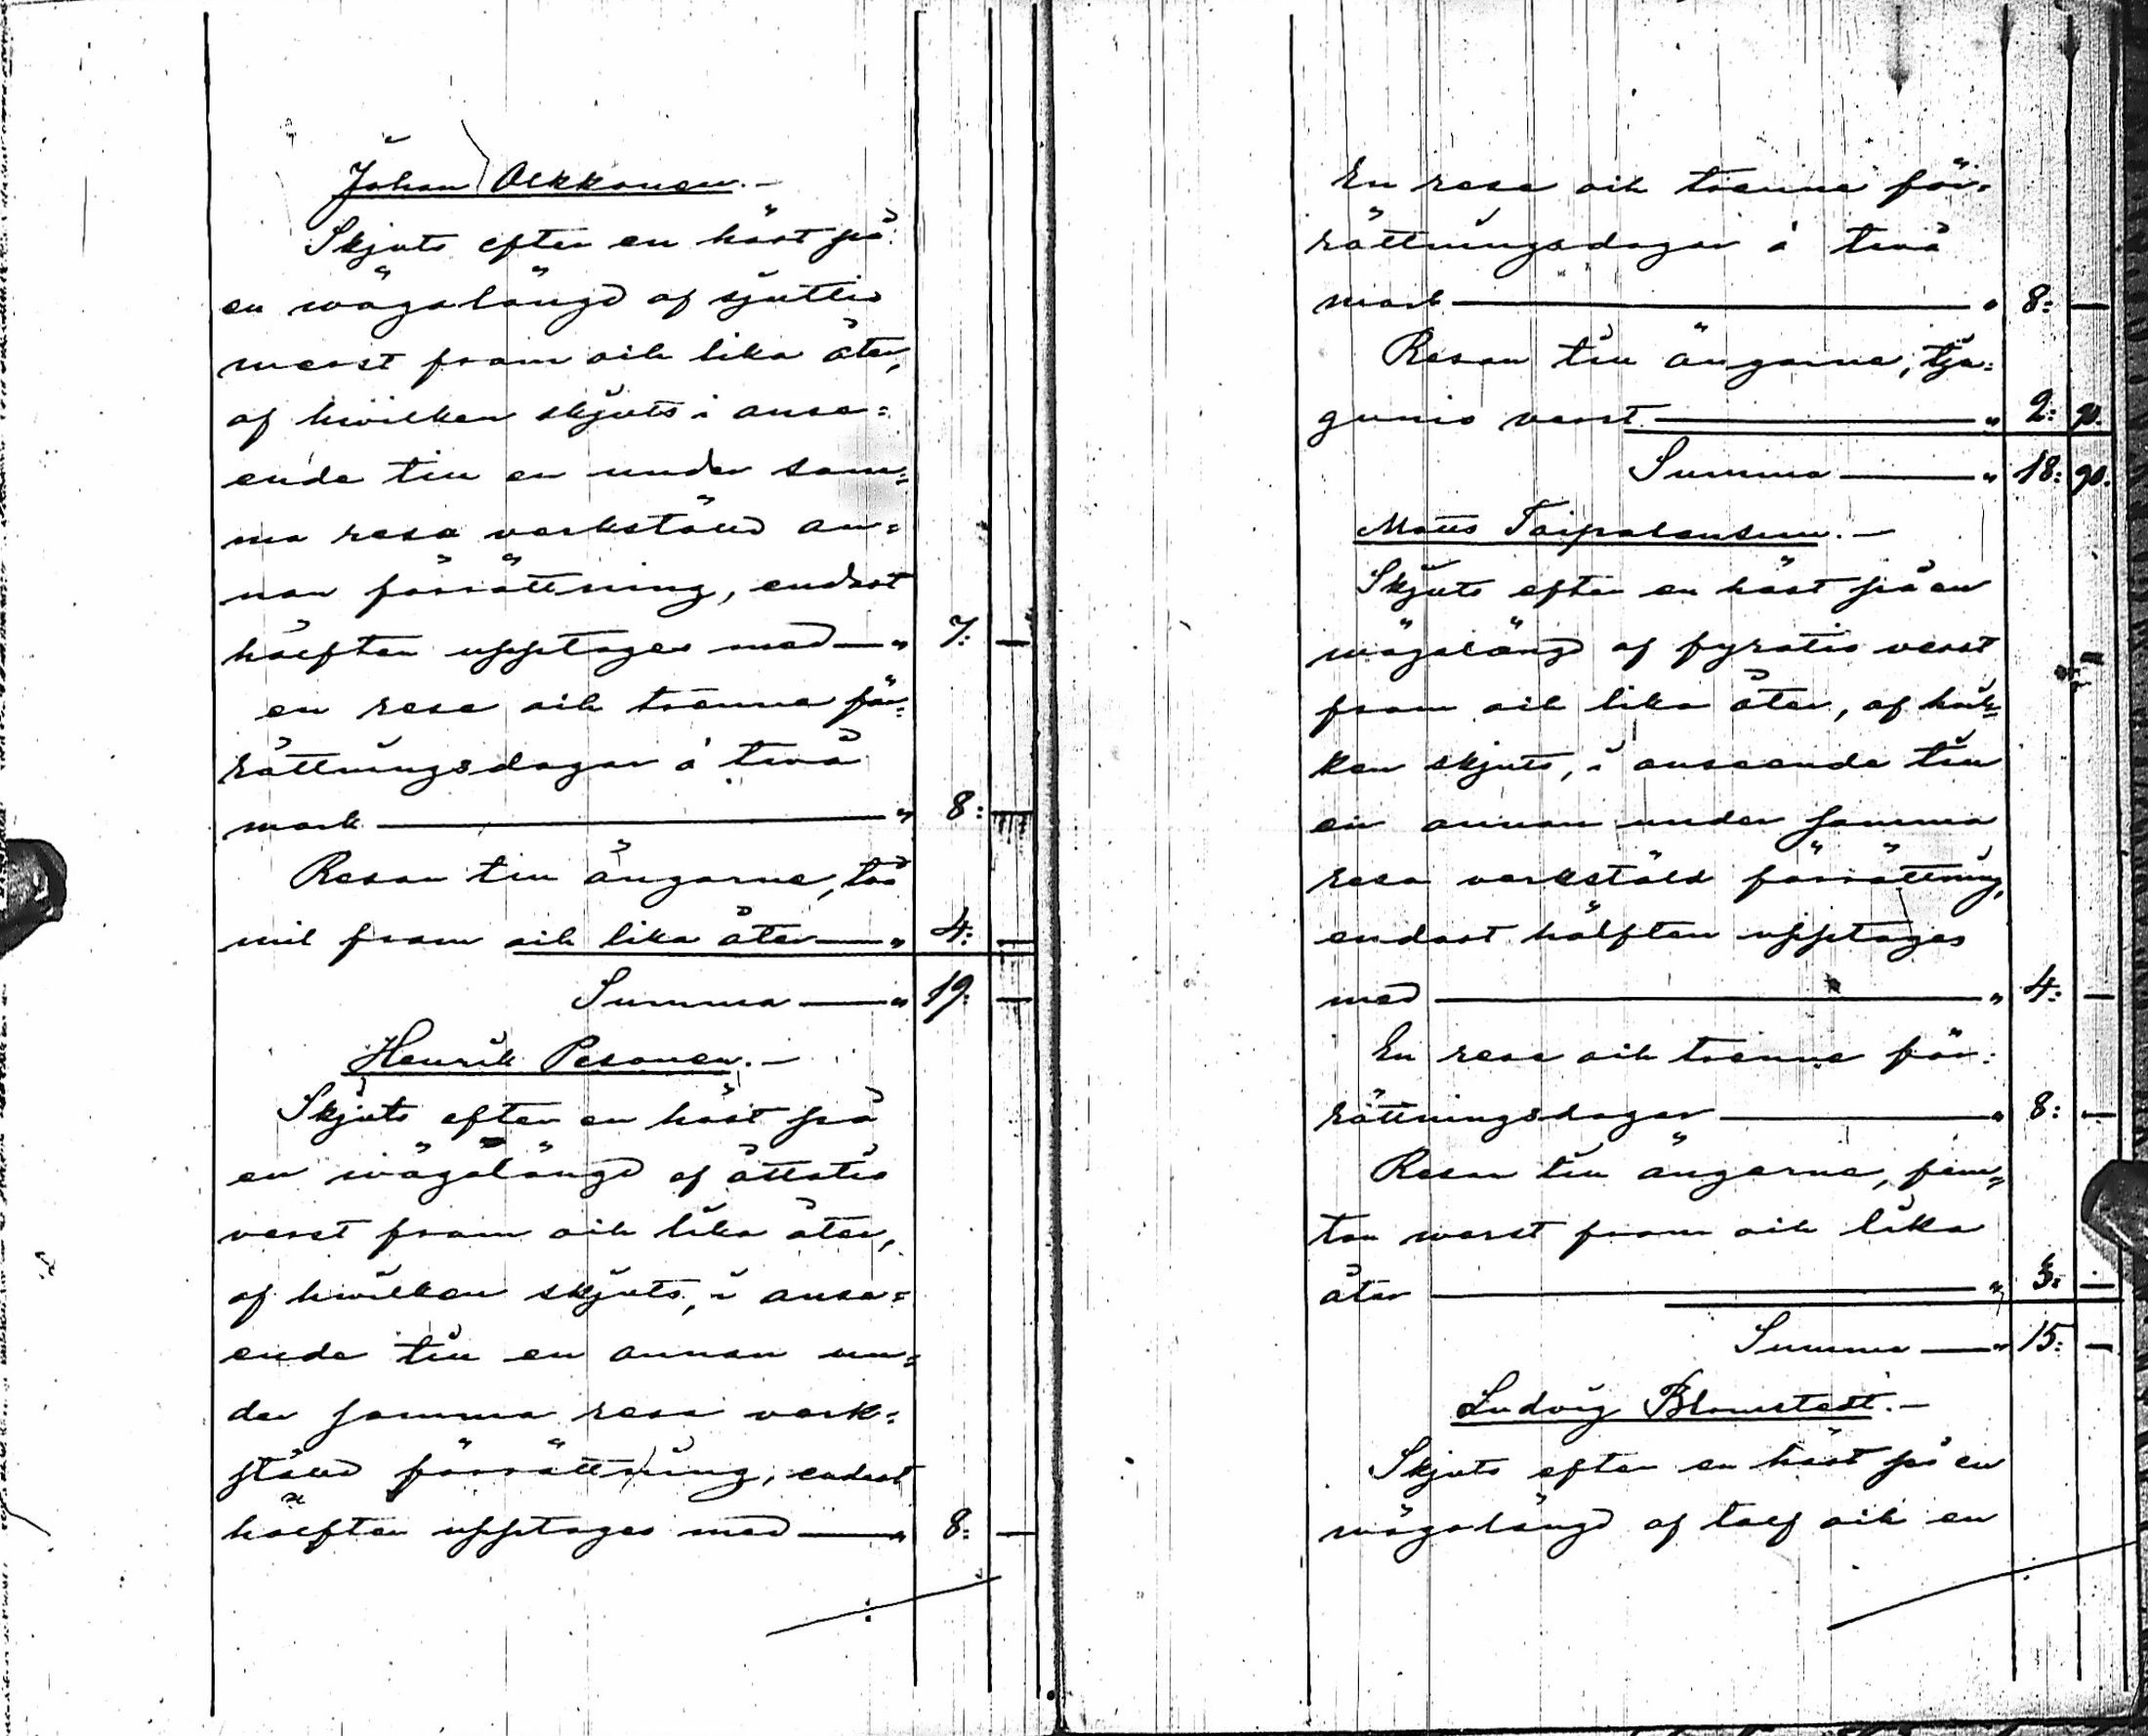 Johan Olkkonen.-
Skjuts efter en häst på
en wägalängd af sjuttio
werst fram och lika åter,
af hwilken skjuts i anse=
ende till en under sam=
ma resa verkställd an=
nan förrättning, endast
hälften upptages med — " 7: —
en resa och trenne för=
rättningsdagar á två
mark — " 8: —
Resan till ängarne, två
mil fram och lika åter — " 4: —
Summa — " 19: —
Henrik Pesonen.-
Skjuts efter en häst på
en wägalängd af åttatio
verst fram och lika åter,
af hwilken skjuts, i anse=
ende till en annan un=
der samma resa verk=
ställd förrättning, endast
hälften upptages med — " 8: —
En resa och trenne för=
rättningsdagar á två
mark — " 8: —
Resan till ängarne, tju=
gunio verst — " 2: 90.
Summa — " 18: 90.
Matts Taipalensuu.-
Skjuts efter en häst på en
wägalängd af fyratio verst
fram och lika åter, af hvil=
ken skjuts, i anseende till
en annan under samma
resa verkstäld förrättning,
endast hälften upptages
med — " 4: —
En resa och trenne för=
rättningsdagar — " 8: —
Resan till ängarne, fem=
ton werst fram och lika
åter — " 3: —
Summa — " 15: —
Ludvig Blomstedt.-
Skjuts efter en häst på en
wägalängd af tolf och en